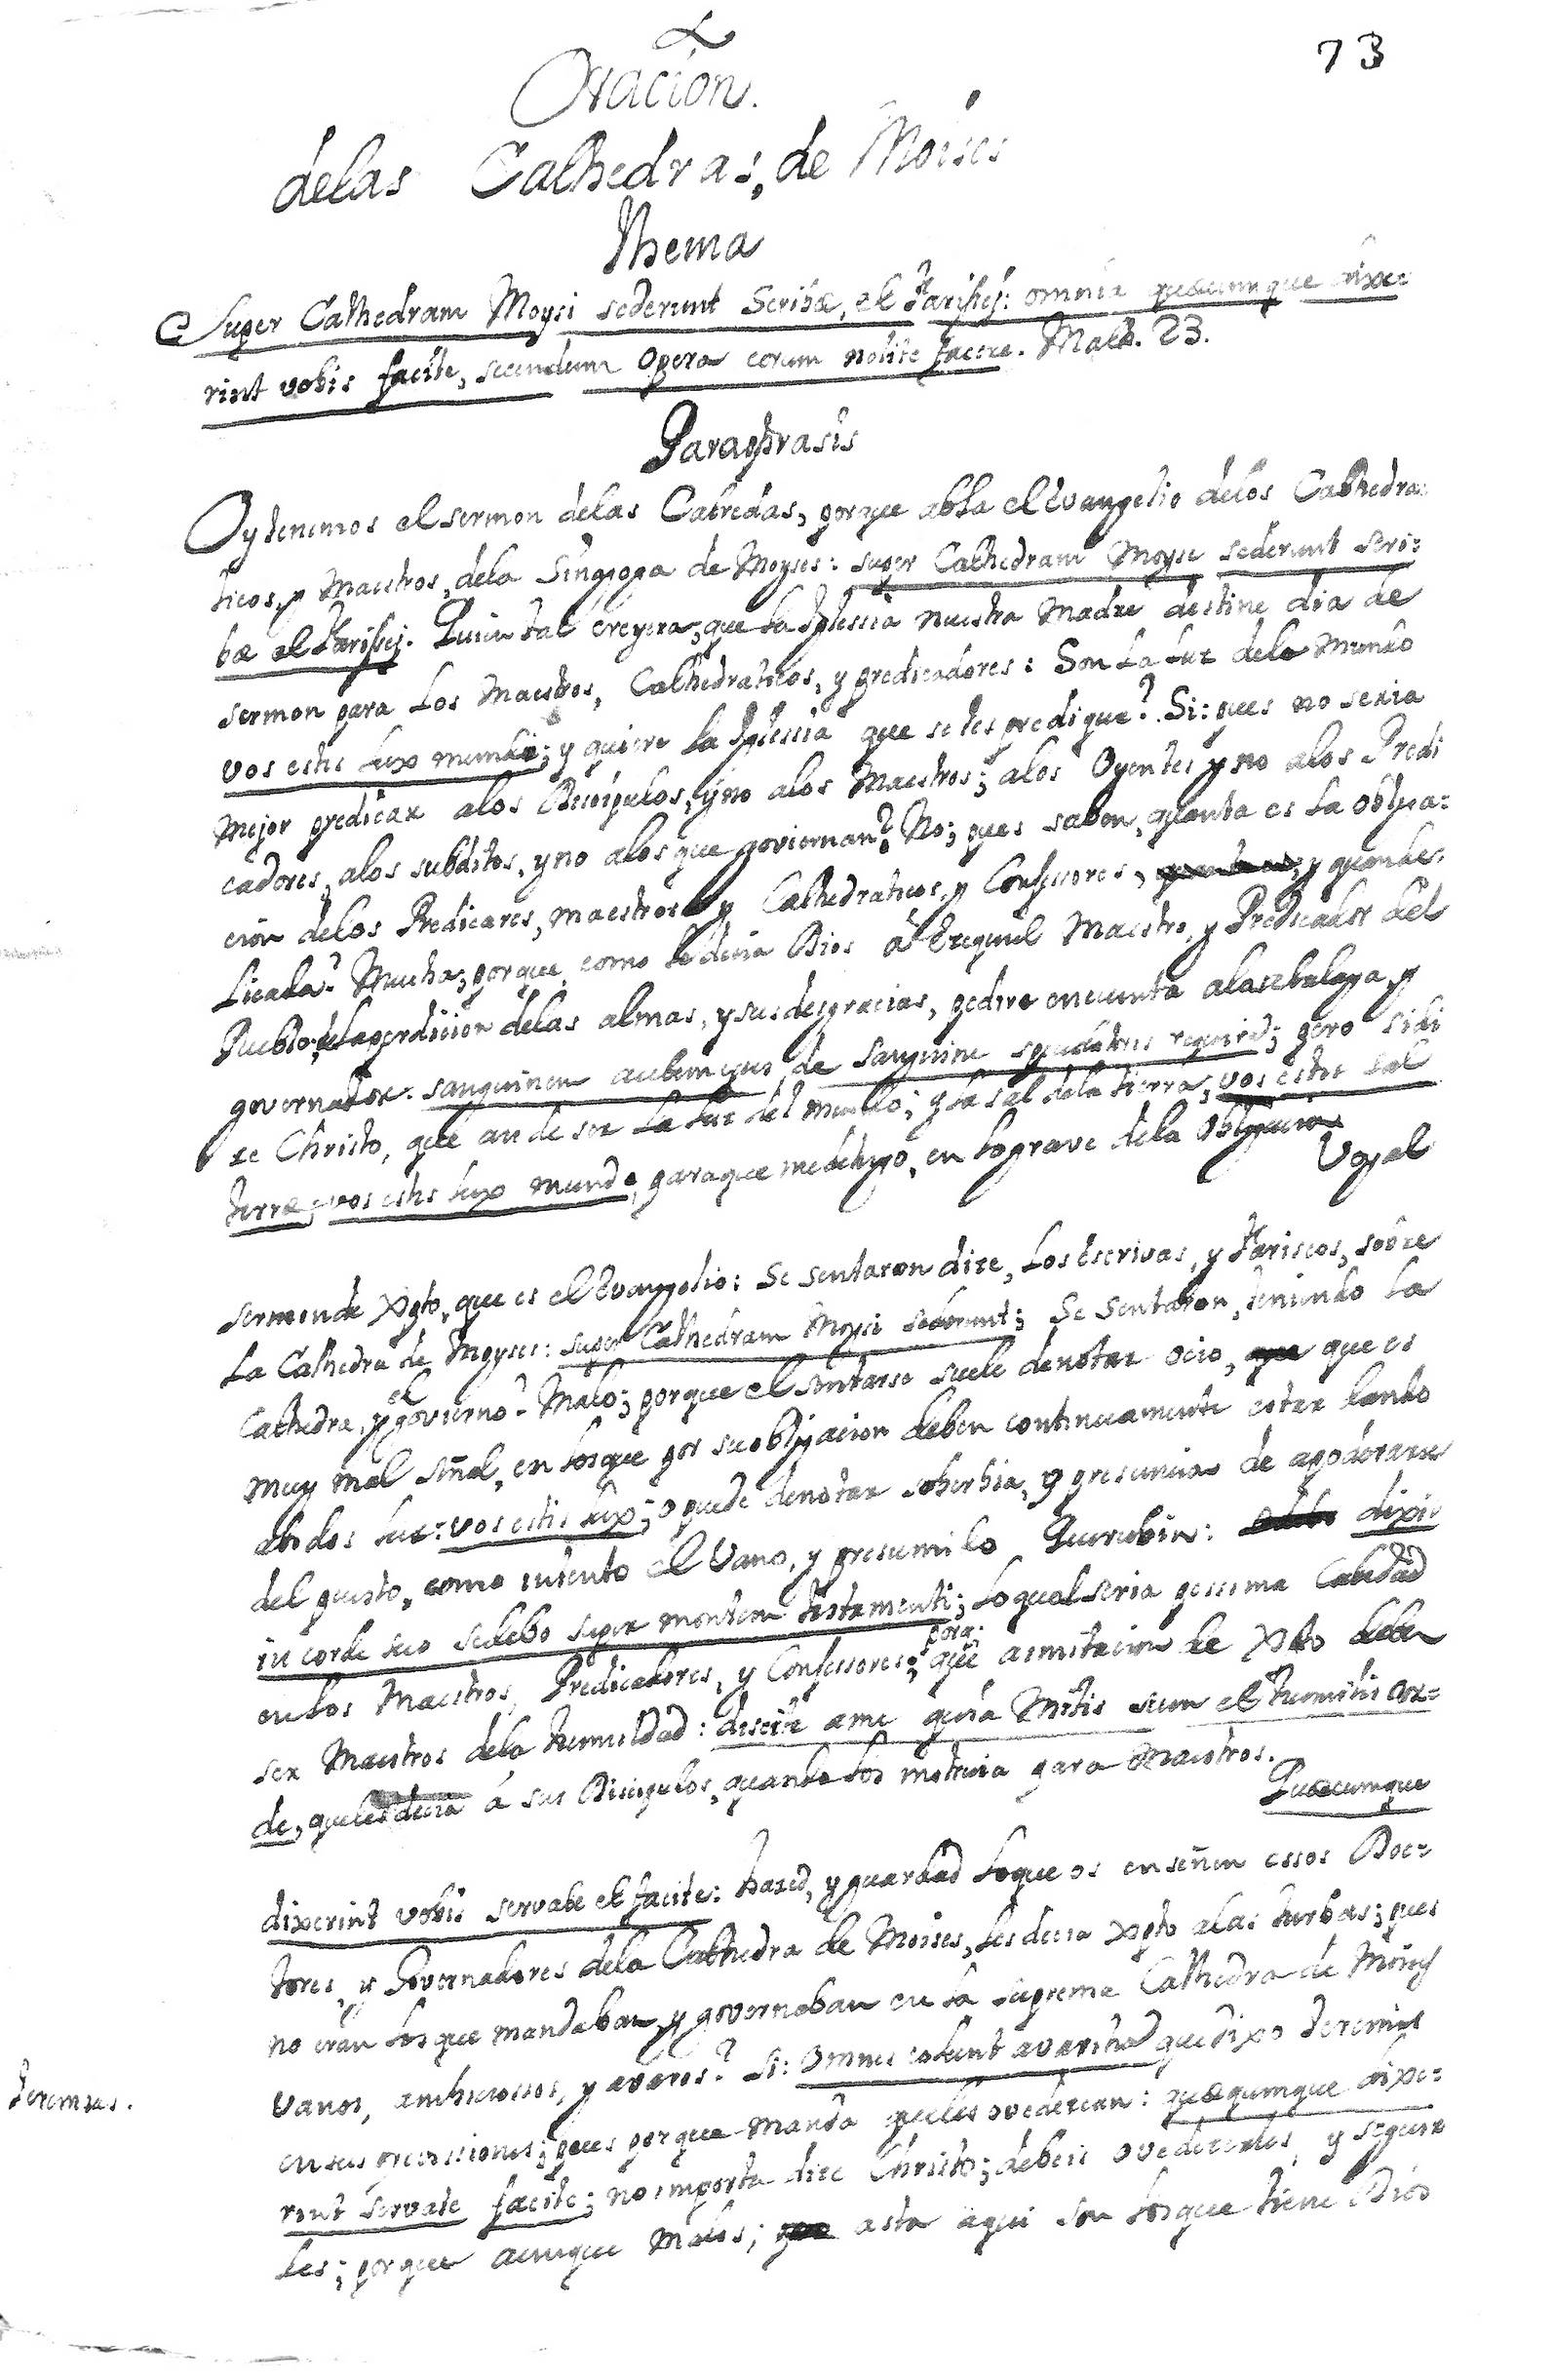 73
Oracion.
delas Cathedras, de Moises
Thema
Super Cathedram Moysi sederunt Scribæ, et Farissej: omnia quæcumque dixe=
rint vobis facite, secundum opera eorum nolite facere. Math. 23.
Paraphrasis
Oy tenemos el sermon delas Catredas, porque abla el Evangelio delos Cathedra=
ticos, y Maestros, dela Singogga de Moyses: super Cathedram Moyse sederunt scri=
bæ et Farissej. Quien tal creyera, que la Iglessia nuestra Madre destine dia de
sermon para los Maestros, Cathedraticos, y predicadores: Son la luz dela Mundo
vos estis lux mundi; y quiere la Iglessia que se les predique? Si: pues no seria
Mejor predicar alos Discipulos, y no alos Maestros; alos Oyentes y no alos Predi
cadores, alos subditos, y no alos que goviernan? No; pues saben, quanta es la obliga=
cion delos Predicares, maestros y Cathedraticos, y Confessores, y quan de=
licada? Mucha; porque, como le decia Dios á Ezequiel Maestro, y Predicador del
Pueblo; dela perdicion delas almas, y sus desgracias, pedire encuenta ala atalaya, y
governador. sanguinem autem ejus de sanguine requiro; pero si di
ze Christo, que an de ser la luz del mundo; y la sal dela tierra, vos estis sal
terræ; vos estis lux mundi, paraque me detengo, en lo grave dela obligacion
Voy al
sermon de Xpto, que es el Evangelio: Se sentaron dize, los Escrivas, y Fariseos, sobre
la Cathedra de Moyses: super Cathedram Moysi sederunt; Se sentaron, teniendo la
Cathedra, y el govierno? Malo; porque el sentarse suele denotar ocio, que es
muy mal señal, en los que por su obligacion deben continuamente estar dando
atodos luz: vos estis lux; o puede denotar soberbia, y presuncion de apoderarse
del puesto, como intento el Vano, y presumido Querubin: dixit
in corde suo sedebo super montem testamenti; lo qual seria pessima calidad
en los Maestros, Predicadores, y Confessores; porq; que a imitacion de Xpto deben
ser Maestros dela humildad: discite a me quia Mitis sum et humilis cor=
de, que les decia á sus Discipulos, quando los instruia para Maestros.
Quæcumque
dixerint vobis servate et facite: hazed, y guardad lo que os enseñen essos Doc=
tores, y Governadores dela Cathedra de Moises, les decia Xpto alas turbas; pues
no eran los que mandaban, y governaban en la suprema Cathedra de Moises
vanos, ambiciossos, y avaros? Si: omnes colunt avaritia que dixo Jeremias
Jeremias.
en sus; pues porque manda que les ovedezcan: quæqumque dixe=
rint servate facite; no importa dize Christo; debeis ovedecerles, y seguir
les; porque aunque Malos; asta aqui son los que tiene Dios